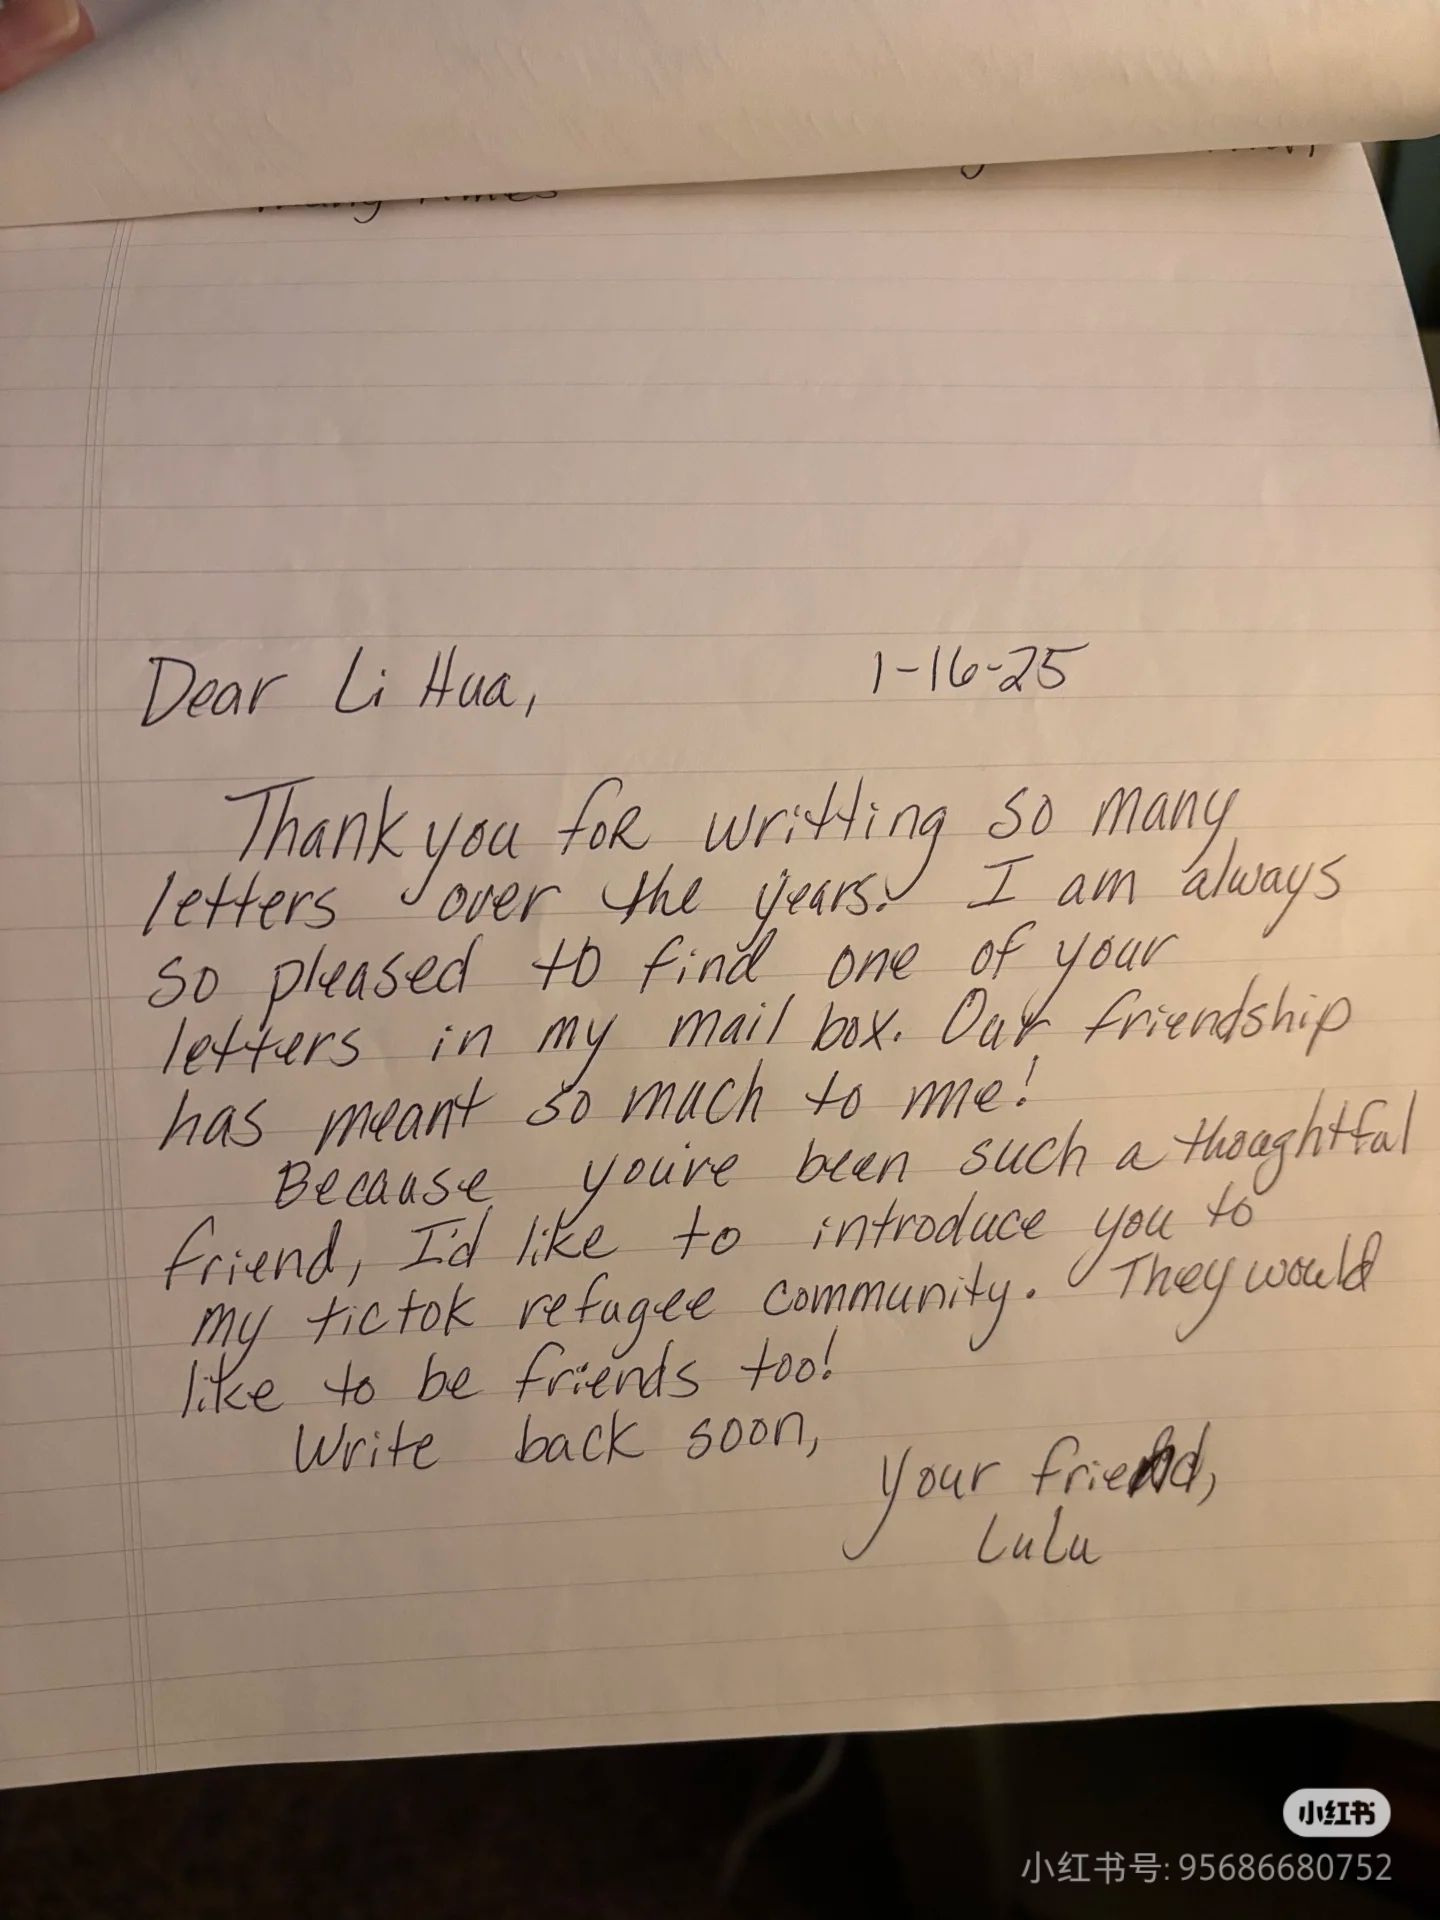 many times
Dear Li Hua, 1-16-25
Thank you for writting so many
letters over the years. I am always
so pleased to find one of your
letters in my mail box. Our friendship
has meant so much to me!
Because you've been such a thoughtful
friend, I'd like to introduce you to
my tictok refugee community. They would
like to be friends too!
Write back soon,
Your friend,
LuLu
小红书
小红书号: 95686680752